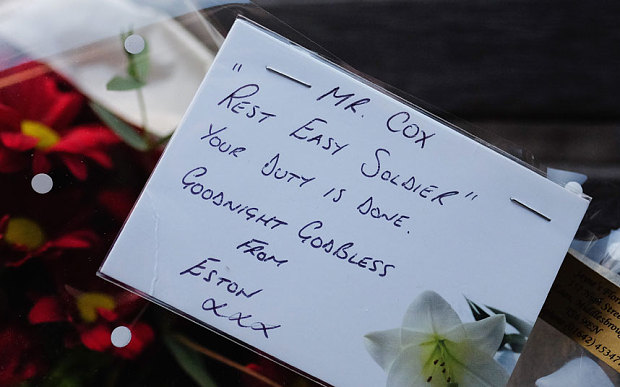 MR. COX
"REST EASY SOLDIER"
YOUR DUTY IS DONE.
GOODNIGHT GODBLESS
FROM
ESTON
XXX